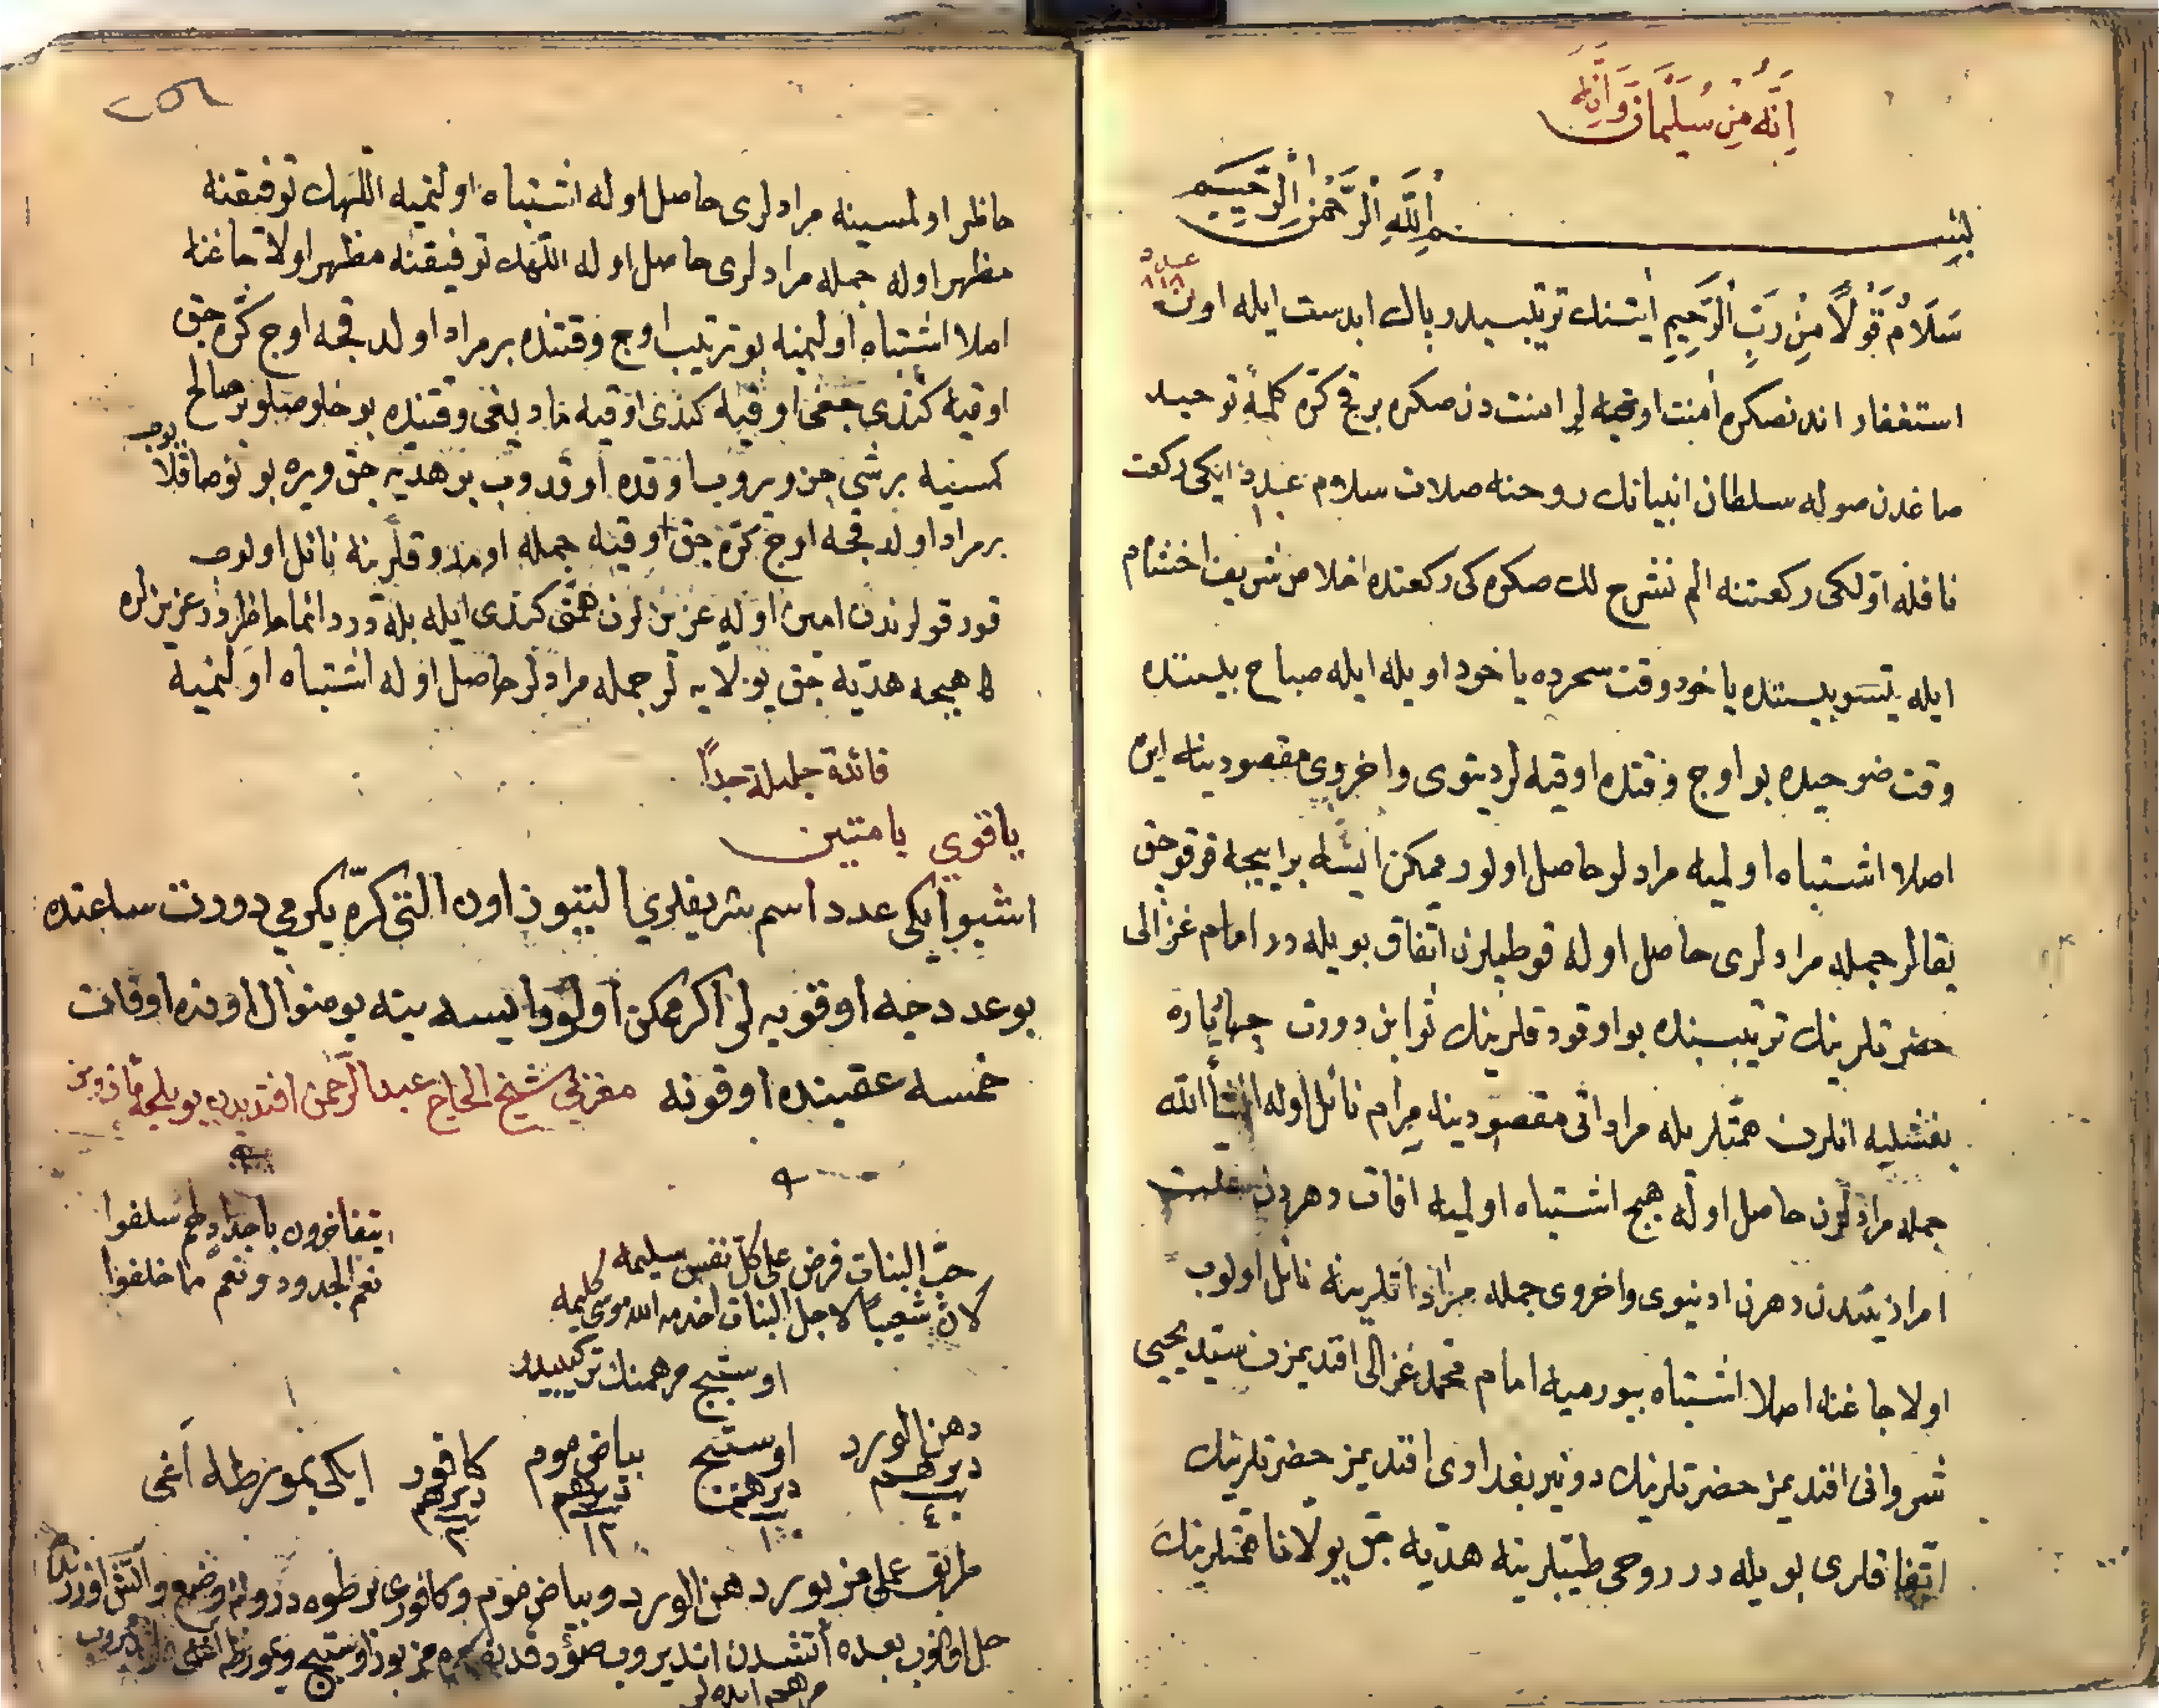 إنه من سليمان وإنه
بسم الله الرحمن الرحيم
عدد ٨١٨
سلام قولا من رب الرحيم ايتنك ترتيبيدر پاك ابدست ايله اون
استغفار اندنصكره امنت اوقيه لر امنت دن صكره بر قچ كره كلمهٔ توحيد
صاغدن صوله سلطان انبيانك روحنه صلات سلام عدد ١٠ ايكى ركعت
نافله اولكى ركعتنه الم نشرح لك صكره كى ركعتده اخلاص شريف اختتام
ايله يتسو بيستده ياخود وقت سحرده ياخود اويله ايله صباح بيستده
وقت ضوحيده بو اوچ وقتده اوقيه لر دنيوى واخروى مقصودينه ايره
اصلا اشتباه اولميه مرادلر حاصل اولور ممكن ايسه برايجه قرقر حق
يقالر جمله مرادلرى حاصل اوله قوطبلرن اتفاق بويله در امام غزالى
حضرتلرينك ترتيبسنده بو اوقودقلرينك ثوابن دورت چهاريا ره
بغشليه انلرن همتلر بله مراداتى مقصودينه مرام نائل اوله انشاء الله
جمله مرادلرن حاصل اوله هيچ اشتباه اولميه افات دهردن
امراد يتدن دهرن ادنيوى واخروى جمله مراداتلرينه نائل اولوب
اولاجاغنه اصلا اشتباه بيورميه امام محمد غزالى افنديمزن سيد يحيى
شروانى افنديمز حضرتلرينك دونير بغداوى افنديمز حضرتلرينك
اتفاقلرى بويله در روحى طيبلرينه هديه حق يولانا همتلرينك
حاظر اولمسينه مرادلرى حاصل اوله اشتباه اولنميه اللهك توفيقنه
مظهر اوله جمله مرادلرى حاصل اوله اللهك توفيقنه مظهر اولاجاغنه
املا اشتباه اولنميه بو ترتيب اوچ وقتنده بر مراد اولدقچه اوچ كره حق
اوقيه كندى حقى اوقيه كندى اوقيه مادىغى وقتنده بو خلوصيلو بر صالح
كمسنيه بر شى جن ويروب اوقده اوقدوب بر هديه حق ويره بو نوصاقلا يوب
بر مراد اولدقچه اوچ كره حق اوقيه جمله اومدوقلرينه نائل اولوب
قورقولرندن امين اوله عزيزلرن همتى كندى ايله بله در دائما حاظردر عزيزلره
هيچه هديه حق يولايه لر جمله مرادلر حاصل اوله اشتباه اولنميه
فائدة جليلة جداً
ياقوي يا متين
اشبو ايكى عدد اسم شريفلري التيون اون التى كرّه يكرمي دورت ساعتده
بو عدد دخيه اوقويه لر اكر ممكن اولور ايسه ينه بو منوال اوزره اوقات
خمسه عقبنده اوقونه مغربى شيخ الحاج عبد الرحمن افنديدن بويلجه مأذونن
حب البنات فرض على كل نفس سليمه
لان شعيبا لاجل البنات اخدمه الله موسى كليمه
ايتفاخرون باجدادلهم سلفوا
نعم الجدود ونعم ما خلفوا
اوستبج مرهمنك تركيبيدر
دهن الورد درهم ٤
اوستبج درهم ١٠
بياض موم درهم ١٢
كافور درهم ٢
ايكى يمورطه آغى
طريق عمل مزبور دهن الورد وبياض موم وكافورى بر طوه درونه وضع وآتش اوزرنده
حل اولنوب بعده آتشدن انديروب صؤودقدنصكره مزبور اوستبج ويمورطه آغنى
مرهم ايده لر